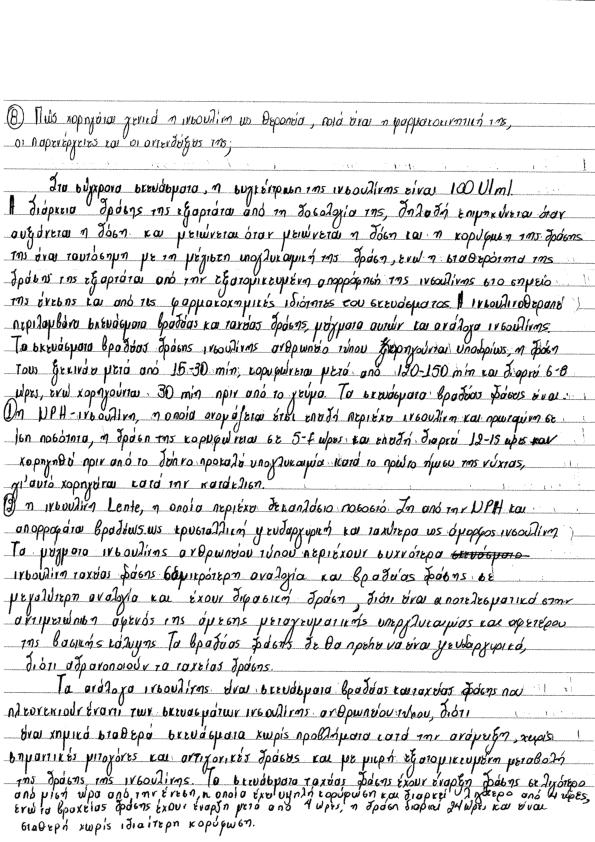 ⑧ Πώς χορηγείται γενικά η ινσουλίνη ως θεραπεία, ποιά είναι η φαρμακοκινητική της,
οι παρενέργειες και οι αντενδείξεις της;
Στα σύγχρονα σκευάσματα, η συγκέντρωση της ινσουλίνης είναι 100 U/ml.
Η διάρκεια δράσης της εξαρτάται από τη δοσολογία της, δηλαδή επιμηκύνεται όταν
αυξάνεται η δόση και μειώνεται όταν μειώνεται η δόση και η κορύφωση της δράσης
της είναι ταυτόσημη με τη μέγιστη υπογλυκαιμική της δράση, ενώ η σταθερότητα της
δράσης της εξαρτάται από την εξατομικευμένη απορρόφηση της ινσουλίνης στο σημείο
της ένεσης και από τις φαρμακοχημικές ιδιότητες του σκευάσματος. Η ινσουλινοθεραπεία
περιλαμβάνει σκευάσματα βραδείας και ταχείας δράσης, μείγματα αυτών και ανάλογα ινσουλίνης.
Τα σκευάσματα βραδείας δράσης ινσουλίνης ανθρωπείου τύπου χορηγούνται υποδορίως, η δράση
τους ξεκινάει μετά από 15-30 min, κορυφώνεται μετά από 120-150 min και διαρκεί 6-8
ώρες, ενώ χορηγούνται 30 min πριν από το γεύμα. Τα σκευάσματα βραδείας δράσης είναι:
① η NPH-ινσουλίνη, η οποία ονομάζεται έτσι επειδή περιέχει ινσουλίνη και πρωταμίνη σε
ίση ποσότητα, η δράση της κορυφώνεται σε 5-7 ώρες και επειδή διαρκεί 12-15 ώρες
χορηγηθεί πριν από το δείπνο προκαλεί υπογλυκαιμία κατά το πρώτο ήμισυ της νύχτας,
γι'αυτό χορηγείται κατά την κατάκλιση.
② η ινσουλίνη Lente, η οποία περιέχει δεκαπλάσιο ποσοστό Zn από την NPH και
απορροφάται βραδέως ως κρυσταλλική ψευδαργυρική και ταχύτερα ως άμορφος ινσουλίνη
Τα μείγματα ινσουλίνης ανθρωπείου τύπου περιέχουν συχνότερα σκευάσματα
ινσουλίνη ταχείας δράσης σε μικρότερη αναλογία και βραδείας δράσης σε
μεγαλύτερη αναλογία και έχουν διφασική δράση, διότι είναι αποτελεσματικά στην
αντιμετώπιση αφενός της άμεσης μεταγευματικής υπεργλυκαιμίας και αφετέρου
της βασικής κάλυψης. Τα βραδείας δράσης δε θα πρέπει να είναι ψευδαργυρικά,
διότι αδρανοποιούν τα ταχείας δράσης.
Τα ανάλογα ινσουλίνης είναι σκευάσματα βραδείας και ταχείας δράσης που
πλεονεκτούν έναντι των σκευασμάτων ινσουλίνης ανθρωπείου τύπου, διότι
είναι χημικά σταθερά σκευάσματα χωρίς προβλήματα κατά την ανάμειξη, χωρίς
σημαντικές μιτογόνες και αντιγονικές δράσεις και με μικρή εξατομικευμένη μεταβολή
της δράσης της ινσουλίνης. Τα σκευάσματα ταχείας δράσης έχουν έναρξη δράσης σε λιγότερο
από μισή ώρα από την ένεση, η οποία έχει υψηλή κορύφωση και διαρκεί λιγότερο από 4 ώρες,
ενώ τα βραχείας δράσης έχουν έναρξη μετά από 4 ώρες, η δράση διαρκεί 24 ώρες και είναι
σταθερή χωρίς ιδιαίτερη κορύφωση.